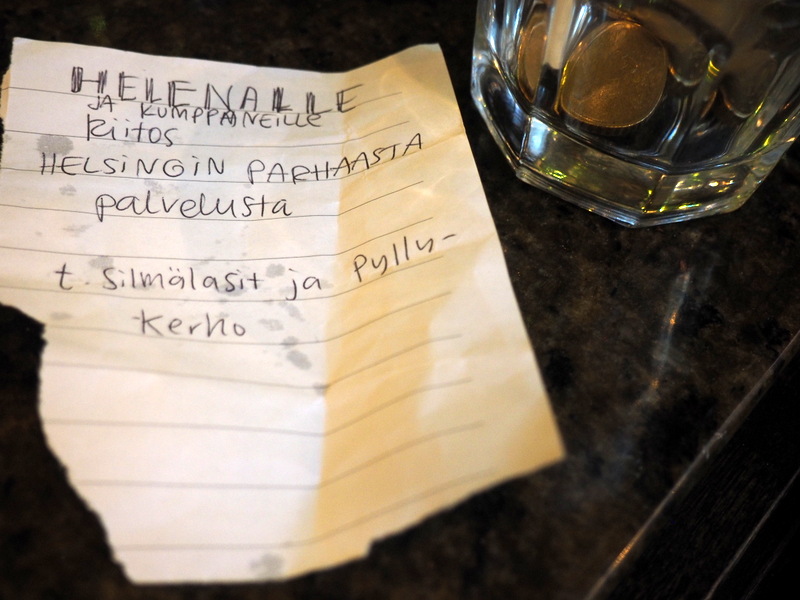 HELENALLE
JA KUMPPANEILLE
Kiitos
HELSINGIN PARHAASTA
palvelusta
t. Silmälasit ja pyllu-
Kerho